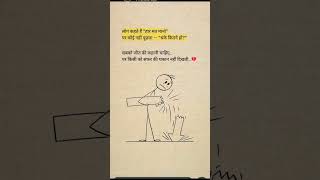 लोग कहते हैं "हार मत मानो"
पर कोई नहीं पूछता — "थके कितने हो?"
सबको जीत की कहानी चाहिए,
पर किसी को सफर की थकान नहीं दिखती..💔